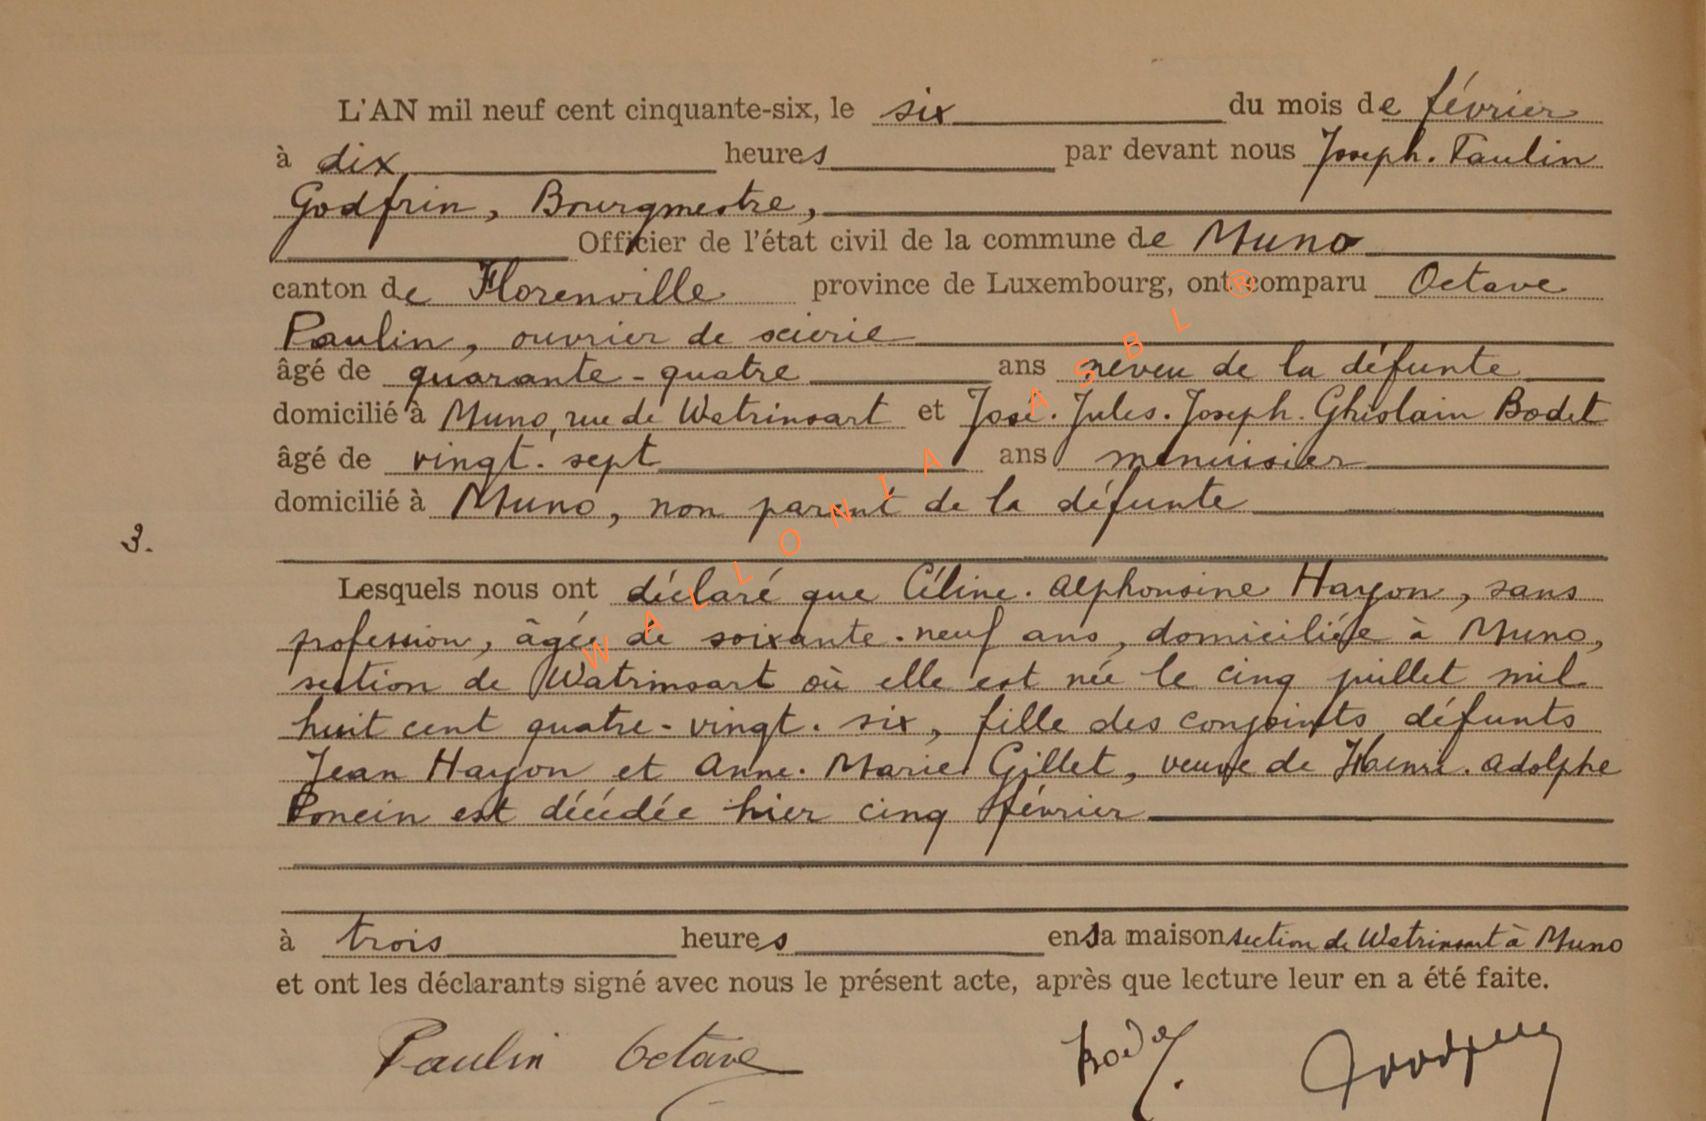 L'AN mil neuf cent cinquante-six, le six du mois de février
à dix heures par devant nous Joseph. Paulin
Godfrin, Bourgmestre,
Officier de l'état civil de la commune de Muno
canton de Florenville province de Luxembourg, ont comparu Octave
Paulin, ouvrier de scierie
âgé de quarante-quatre ans neveu de la défunte
domicilié à Muno, rue de Watrinsart et José. Jules. Joseph. Ghislain Bodet
âgé de vingt. sept ans menuisier
domicilié à Muno, non parent de la défunte
3.
Lesquels nous ont déclaré que Céline. Alphonsine Hayon, sans
profession, âgée de soixante. neuf ans, domiciliée à Muno,
section de Watrinsart où elle est née le cinq juillet mil
huit cent quatre-vingt. six, fille des conjoints défunts
Jean Hayon et Anne. Marie Gillet, veuve de Henri. Adolphe
Poncin est décédée hier cinq février
à trois heures en sa maison section de Watrinsart à Muno
et ont les déclarants signé avec nous le présent acte, après que lecture leur en a été faite.
Paulin Octave Bodet
WALLONIA ASBL ®